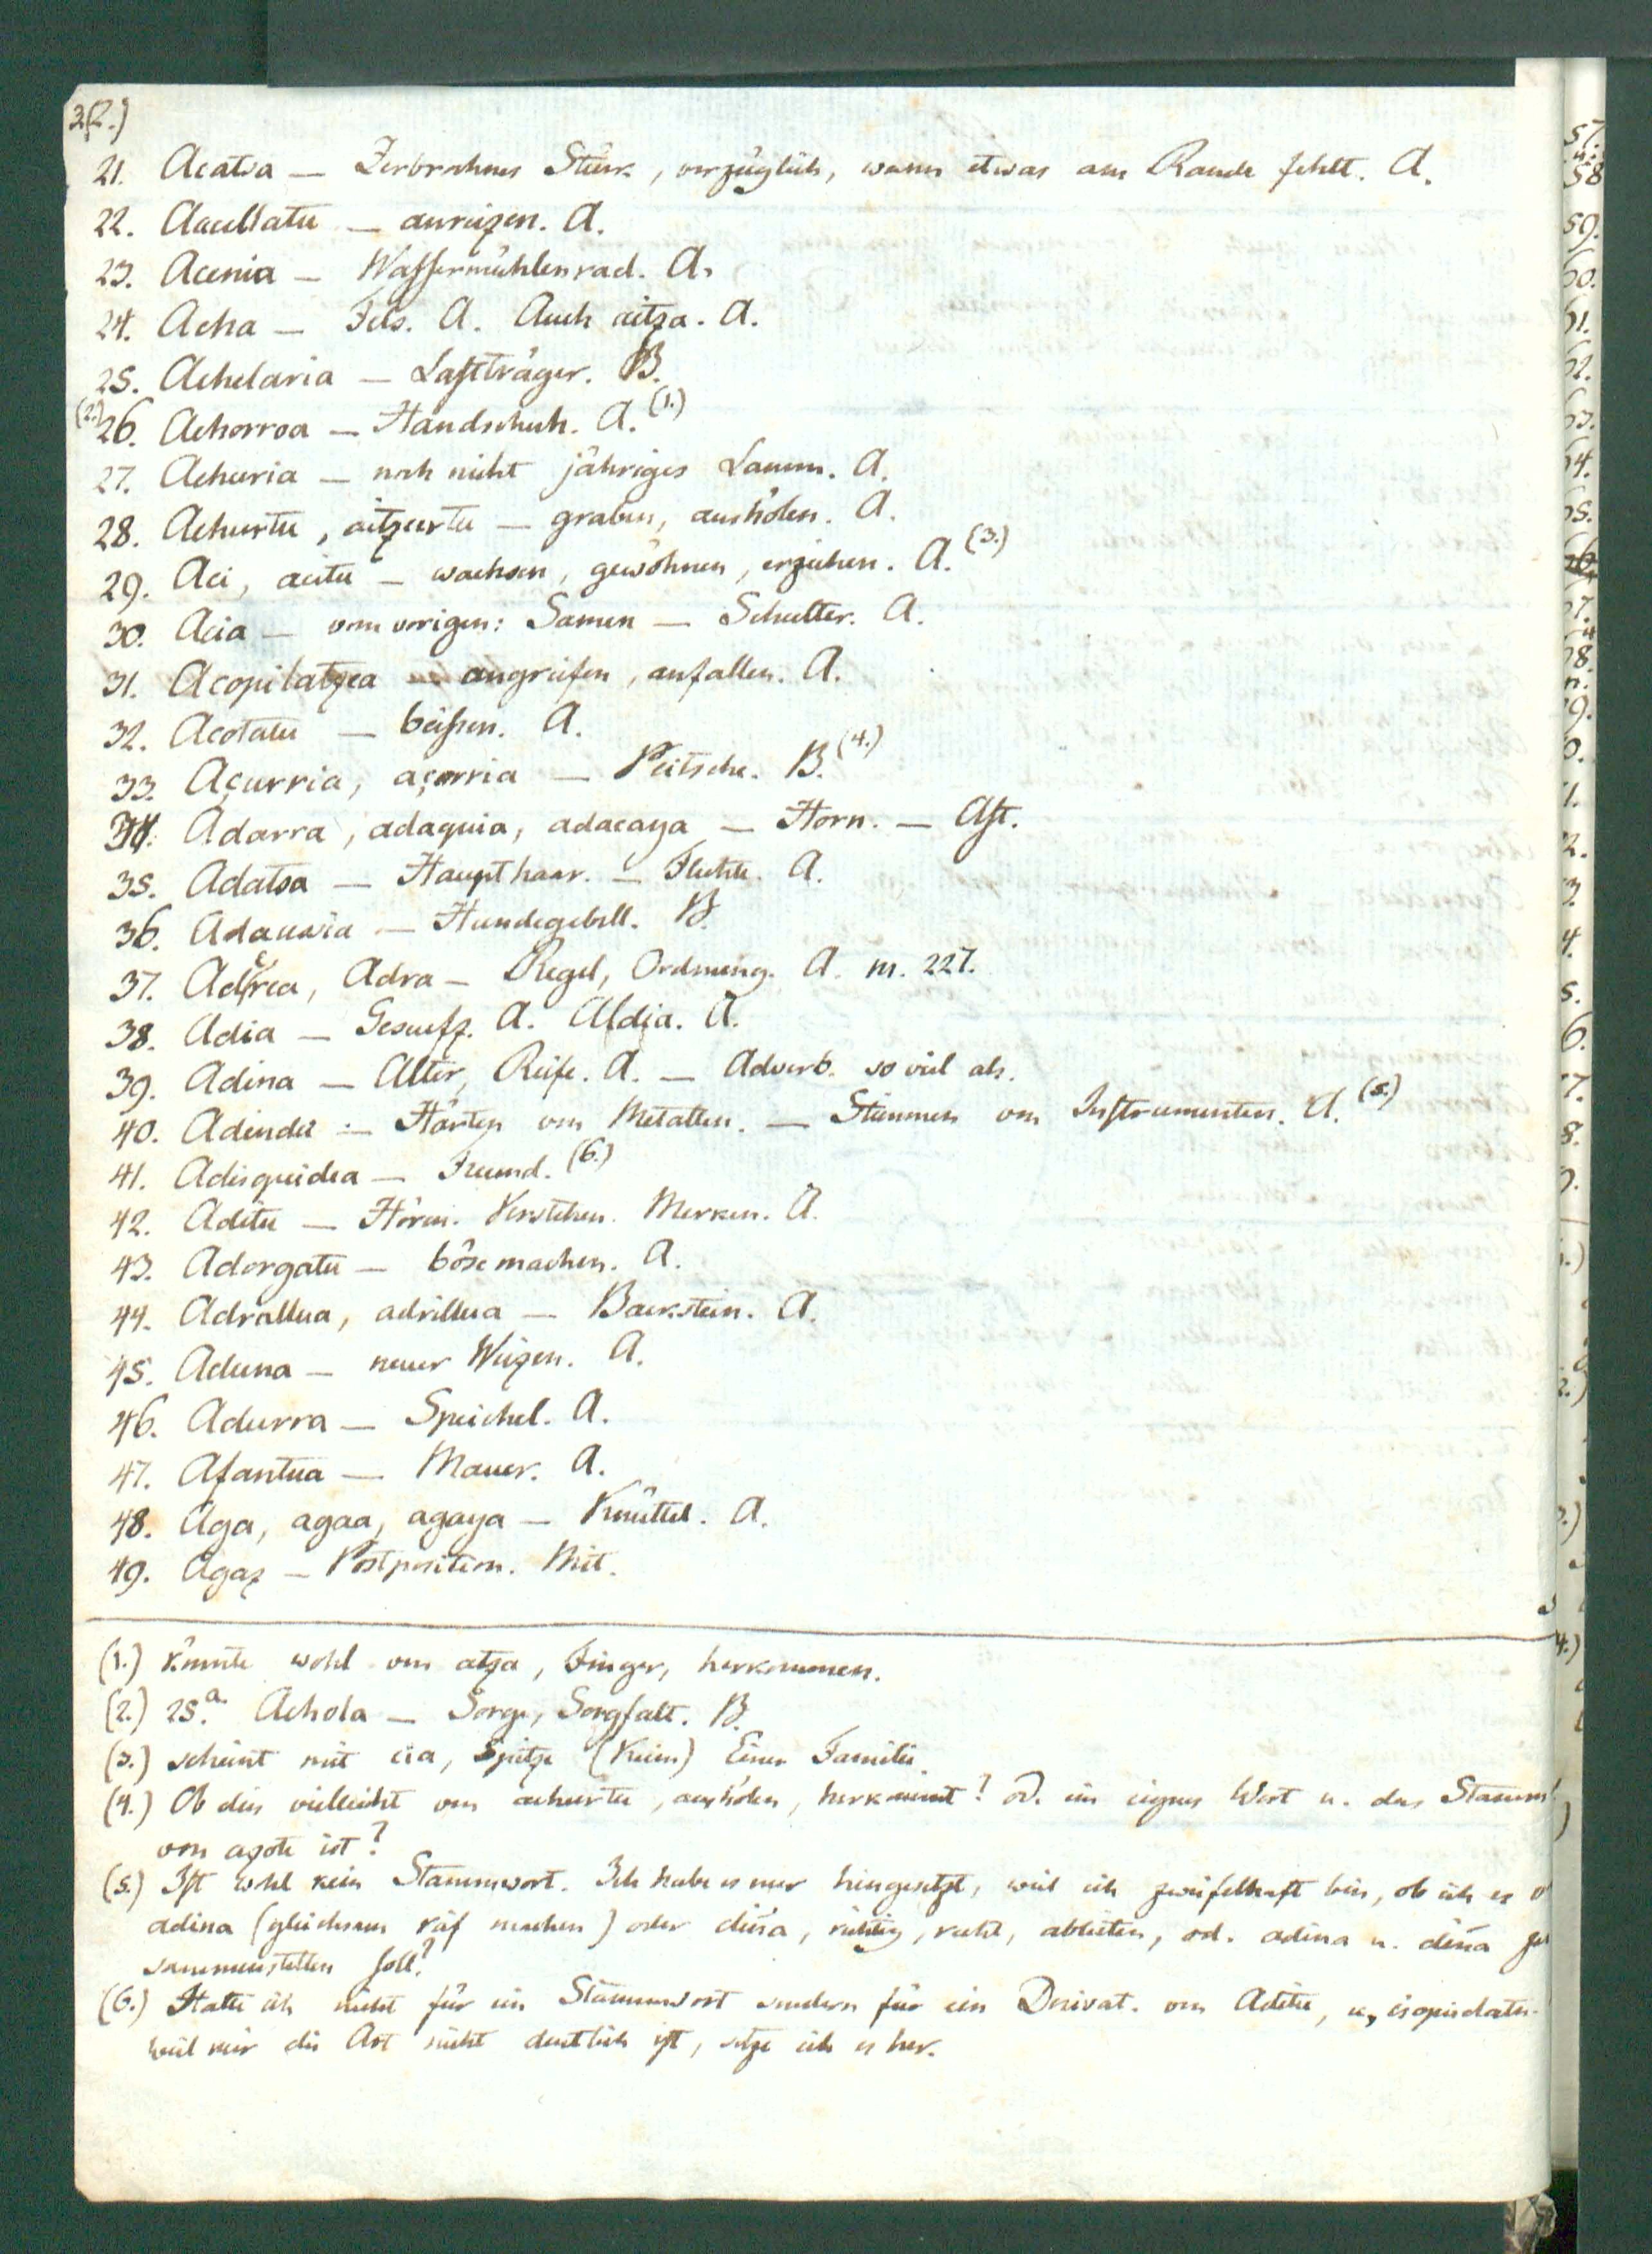 2(2.)
21. Acatsa — Zerbrochnes Stück, vorzüglich, wann etwas am Rande fehlt. A.
22. Acuellatu — anreizen. A.
23. Acenia — Wassermühlenrad. A.
24. Acha — Fels. A. Auch aitza. A.
25. Achelaria — Lastträger. B.
(2.) 26. Achorroa — Handschuh. A. (1.)
27. Achuria — noch nicht jähriges Lamm. A.
28. Achurtu, aitzurtu — graben, aushölen. A.
29. Aci, acitu — wachsen, gewöhnen, erziehen. A. (3.)
30. Acia — vom vorigen: Samen — Schulter. A.
31. Acopilatzea — angreifen, anfallen. A.
32. Acotatu — beissen. A.
33. Açurria, açorria — Peitsche. B. (4.)
34. Adarra, adaquia, adacaya — Horn. — Ast.
35. Adatsa — Haupthaar. — Flechte. A.
36. Adausia — Hundegebell. B.
37. Aderea, Adra — Regel, Ordnung. A. m. 227.
38. Adia — Geseufz. A. Aldia. A.
39. Adina — Alter, Reife. A. — Adverb. so viel als.
40. Adindu — Härten von Metallen. — Stimmen von Instrumenten. A. (5.)
41. Adisquidea — Freund. (6.)
42. Aditu — Hören. Verstehen. Merken. A.
43. Adorgatu — böse machen. A.
44. Adrallua, adrillua — Backstein. A.
45. Aduna — neuer Weizen. A.
46. Adurra — Speichel. A.
47. Afantua — Mauer. A.
48. Aga, agaa, agaya — Knüttel. A.
49. Agaz — Postposition. Mit.
(1.) könnte wohl von atza, Finger, herkommen.
(2.) 25.a Achola — Sorge, Sorgfalt. B.
(3.) scheint mit cia, Spitze (Keim) Einer Familie.
(4.) Ob dies vielleicht von achurtu, aushölen, herkommt? od. ein eignes Wort u. das Stamm
von azote ist?
(5.) Ist wohl kein Stammwort. Ich habe es nur hingesetzt, weil ich zweifelhaft bin, ob ich es v
adina (gleichsam reif machen) oder diña, richtig, recht, ableiten, od. adina u. diña zu
sammenstellen soll?
(6.) Halte ich nicht für ein Stammwort sondern für ein Derivat. von Aditu, u.
weil mir die Art nicht deutlich ist, setze ich es her.